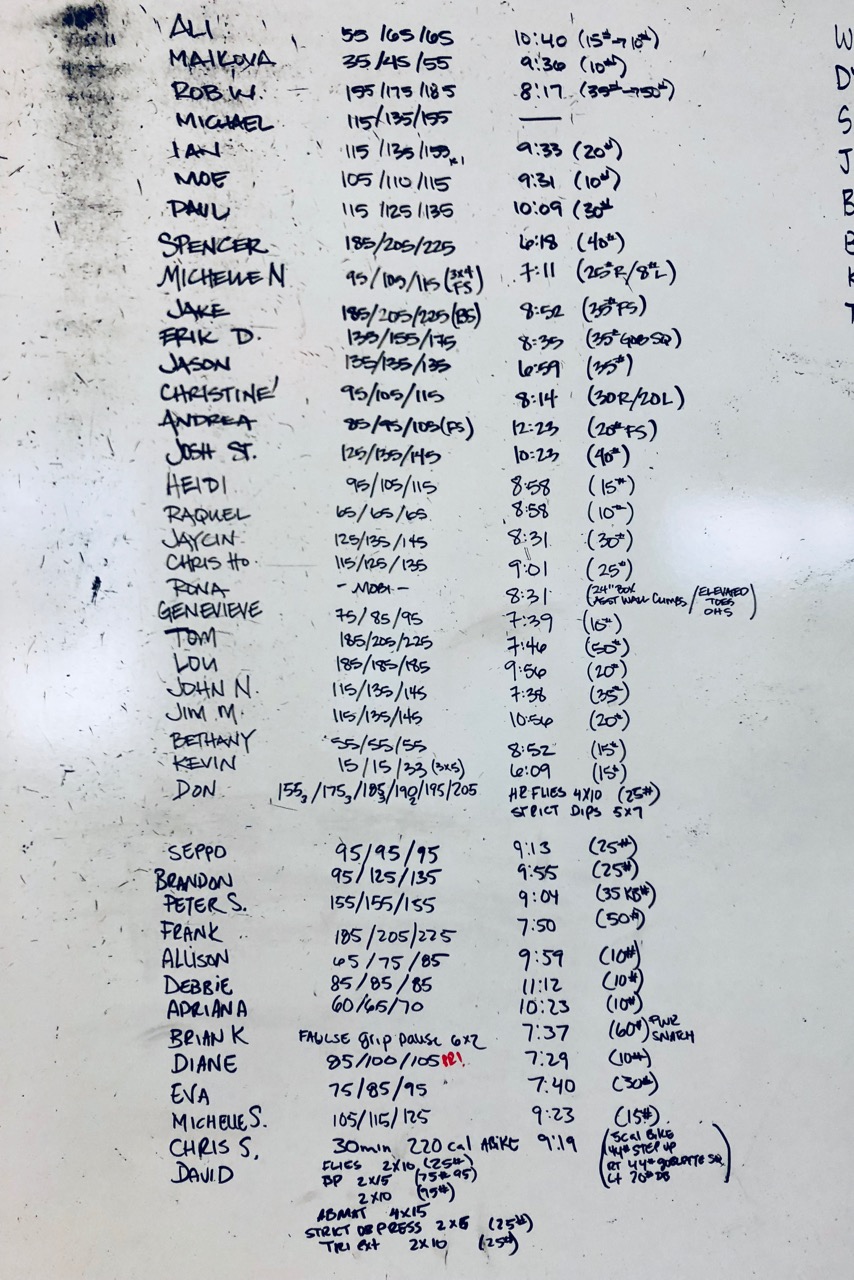 ALI 55/65/65 10:40 (15#→10#)
MAIKOVA 35/45/55 9:36 (10#)
ROB W. 155/175/185 8:17 (35#→50#)
MICHAEL 115/135/155 —
IAN 115/135/155 9:33 (20#)
MOE 105/110/115 9:31 (10#)
PAUL 115/125/135 10:09 (30#
SPENCER 185/205/225 6:18 (40#)
MICHELLE N 95/105/115 (3x4 FS) 7:11 (25#R/8#L)
JAKE 185/205/225 (BS) 8:52 (35#FS)
ERIK D. 135/155/175 8:35 (35# GOB SQ)
JASON 135/135/135 6:59 (35#)
CHRISTINE 95/105/115 8:14 (30R/20L)
ANDREA 85/95/105 (FS) 12:23 (20#FS)
JOSH ST. 125/135/145 10:23 (40#)
HEIDI 95/105/115 8:58 (15#)
RAQUEL 65/65/65 8:58 (10#)
JAYCIN 125/135/145 8:31 (30#)
CHRIS HO 115/125/135 9:01 (25#)
RONA - MOBI - 8:31 (24" BOX ASST WALL CLIMBS / ELEVATED TOES OHS)
GENEVIEVE 75/85/95 7:39 (10#)
TOM 185/205/225 7:46 (50#)
LOU 185/185/185 9:56 (20#)
JOHN N. 115/135/145 7:38 (35#)
JIM M. 115/135/145 10:56 (20#)
BETHANY 55/55/55 8:52 (15#)
KEVIN 15/15/33 (3x5) 6:09 (15#)
DON 155₃/175₃/185₃/190₂/195/205 HR FLIES 4X10 (25#)
STRICT DIPS 5x7
SEPPO 95/95/95 9:13 (25#)
BRANDON 95/125/135 9:55 (25#)
PETER S. 155/155/155 9:04 (35 KB#)
FRANK 185/205/225 7:50 (50#)
ALLISON 65/75/85 9:59 (10#)
DEBBIE 85/85/85 11:12 (10#)
ADRIANA 60/65/70 10:23 (10#)
BRIAN K FAULSE grip pause 6x2 7:37 (60#) PWR SNATCH
DIANE 85/100/105 PR! 7:29 (10#)
EVA 75/85/95 7:40 (30#)
MICHELLE S. 105/115/125 9:23 (15#)
CHRIS S. 30min 220 cal ABIKE 9:19 (5cal BIKE
44# STEP UP
RT 44# GOBLETTE SQ
LT 20# DB)
DAVID FLIES 2x10 (25#)
BP 2x15 (75# 95)
2x10 (75#)
ABMAT 4x15
STRICT DB PRESS 2x8 (25#)
TRI ext 2x10 (25#)
W
D
S
J
B
B
K
T